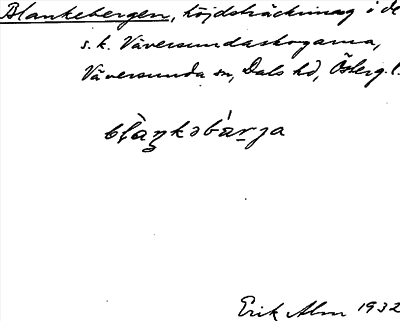 Blankebergen, höjdsträckning i de
s.k. Väversundaskogarna,
Väversunda sn, Dals hd, Österg.l.
blaŋkəbàrja
Erik Alm 1932